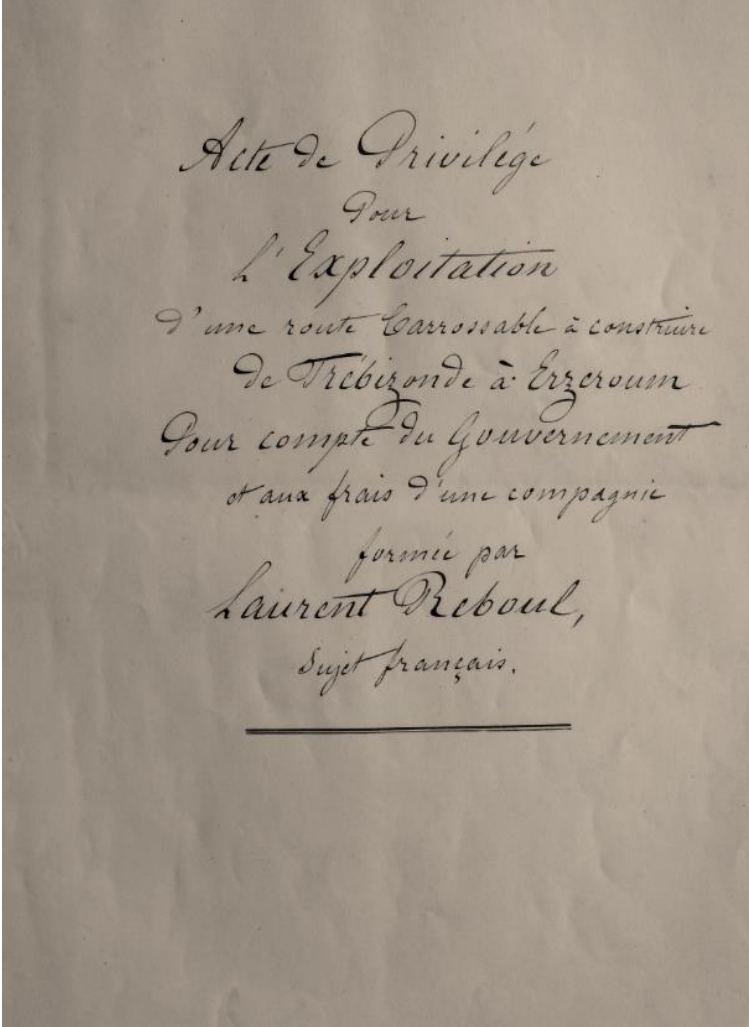 Acte de Privilége
Pour
L'Exploitation
d'une route Carrossable à construire
de Trébizonde à Erzeroum
Pour compte du Gouvernement
et aux frais d'une compagnie
formée par
Laurent Reboul,
Sujet français.